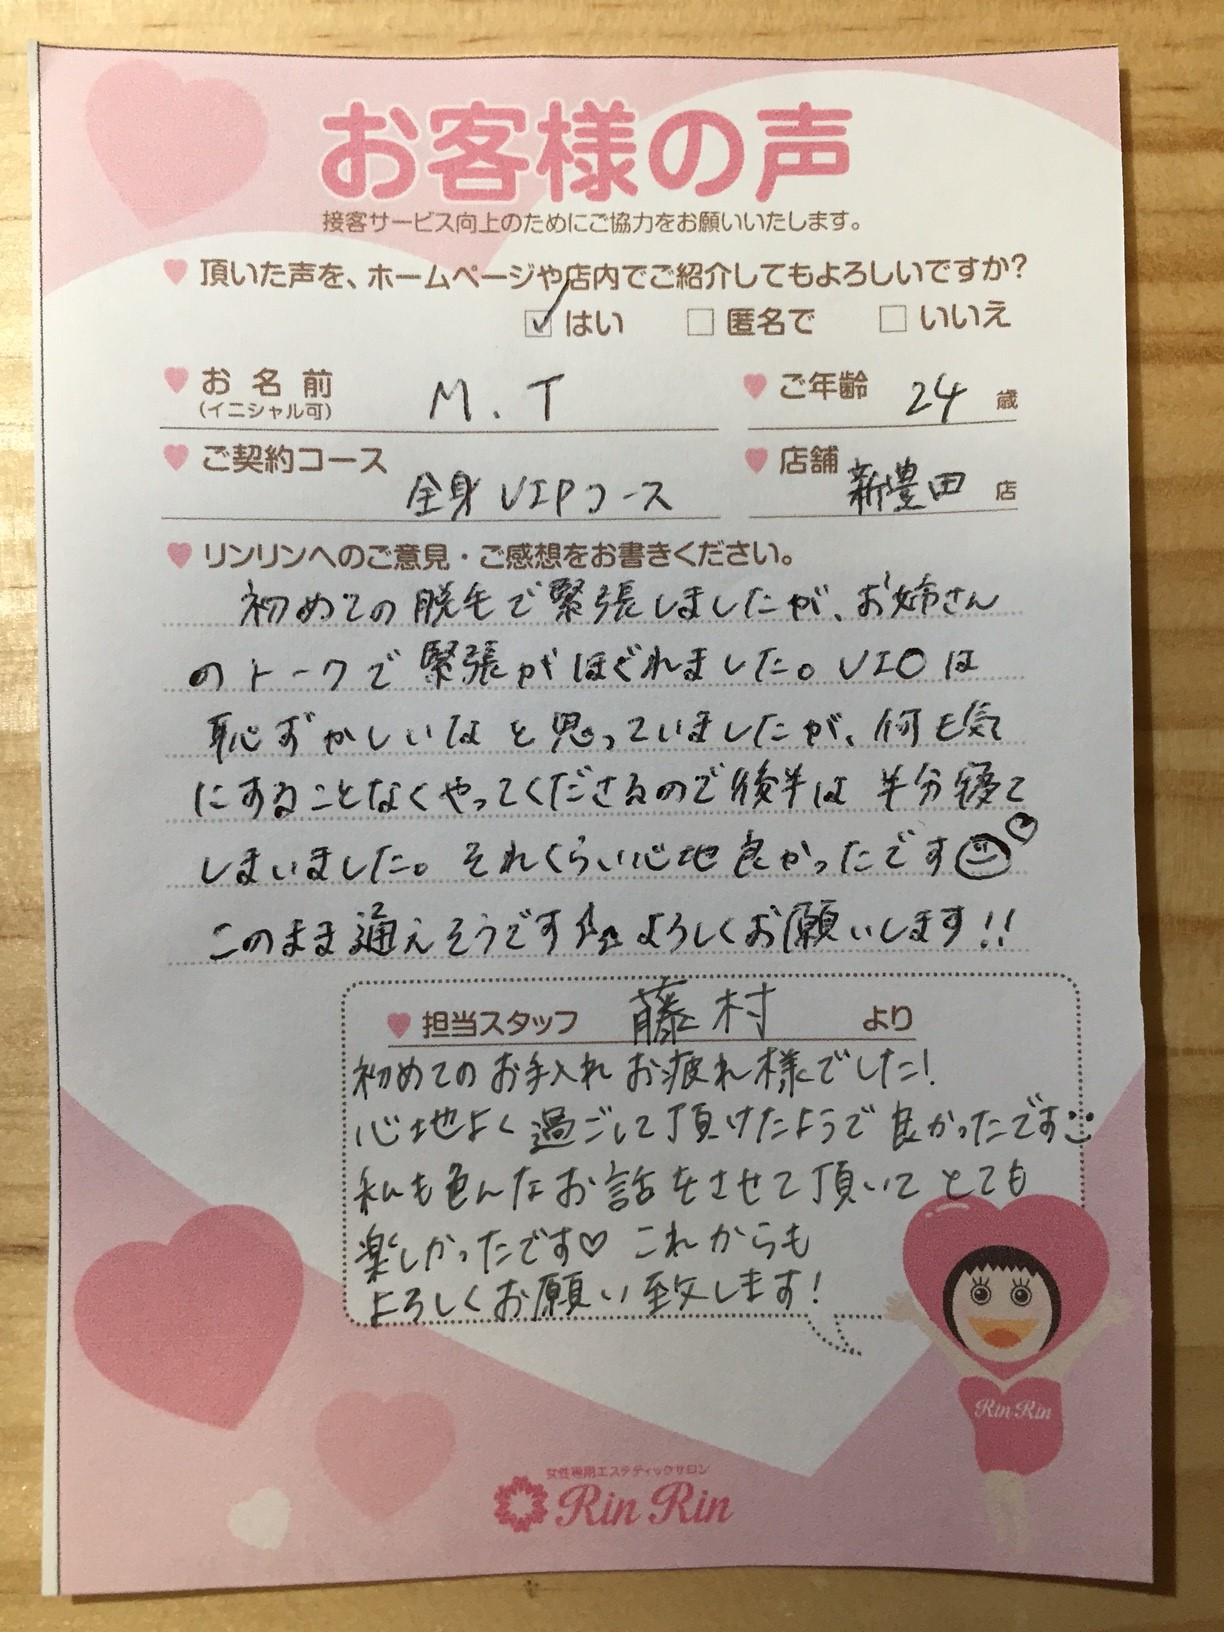 お客様の声
接客サービス向上のためにご協力をお願いいたします。
頂いた声を、ホームページや店内でご紹介してもよろしいですか?
はい 匿名で いいえ
お名前 M.T ご年齢 24 歳
(イニシャル可)
ご契約コース 全身VIPコース 店舗 新豊田 店
リンリンへのご意見・ご感想をお書きください。
初めての脱毛で緊張しましたが、お姉さん
のトークで緊張がほぐれました。VIOは
恥ずかしいなと思っていましたが、何も気
にすることなくやってくださるので後半は半分寝て
しまいました。それくらい心地良かったです
このまま通えそうです よろしくお願いします!!
担当スタッフ 藤村 より
初めてのお手入れお疲れ様でした!
心地よく過ごして頂けたようで良かったです
私も色んなお話をさせて頂いてとても
楽しかったです♡ これからも
よろしくお願い致します!
Rin Rin
女性専用エステティックサロン
Rin Rin